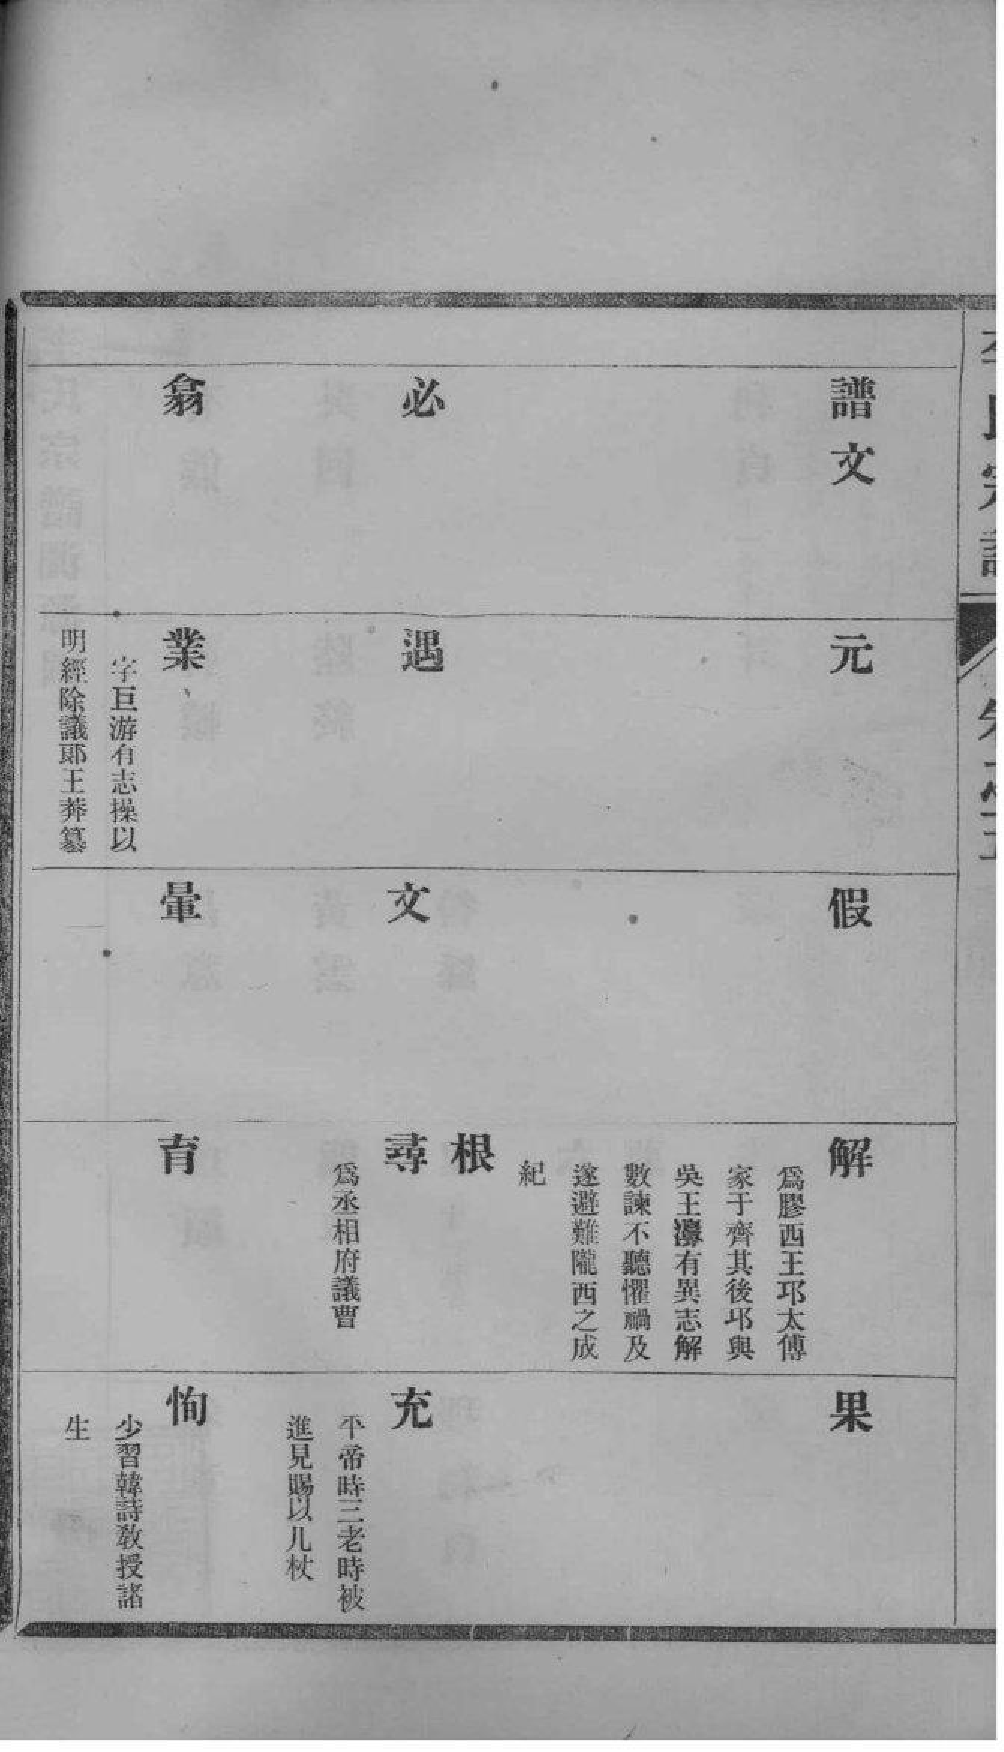 譜文
必
翕
元
遇
業
字巨游有志操以
明經除議郎王莽篡
假
文
暈
解
爲膠西王邛太傅
家于齊其後邛與
吳王濞有異志解
數諫不聽懼禍及
遂避難隴西之成
紀
根
尋
爲丞相府議曹
育
果
充
平帝時三老時被
進見賜以几杖
恂
少習韓詩教授諸
生